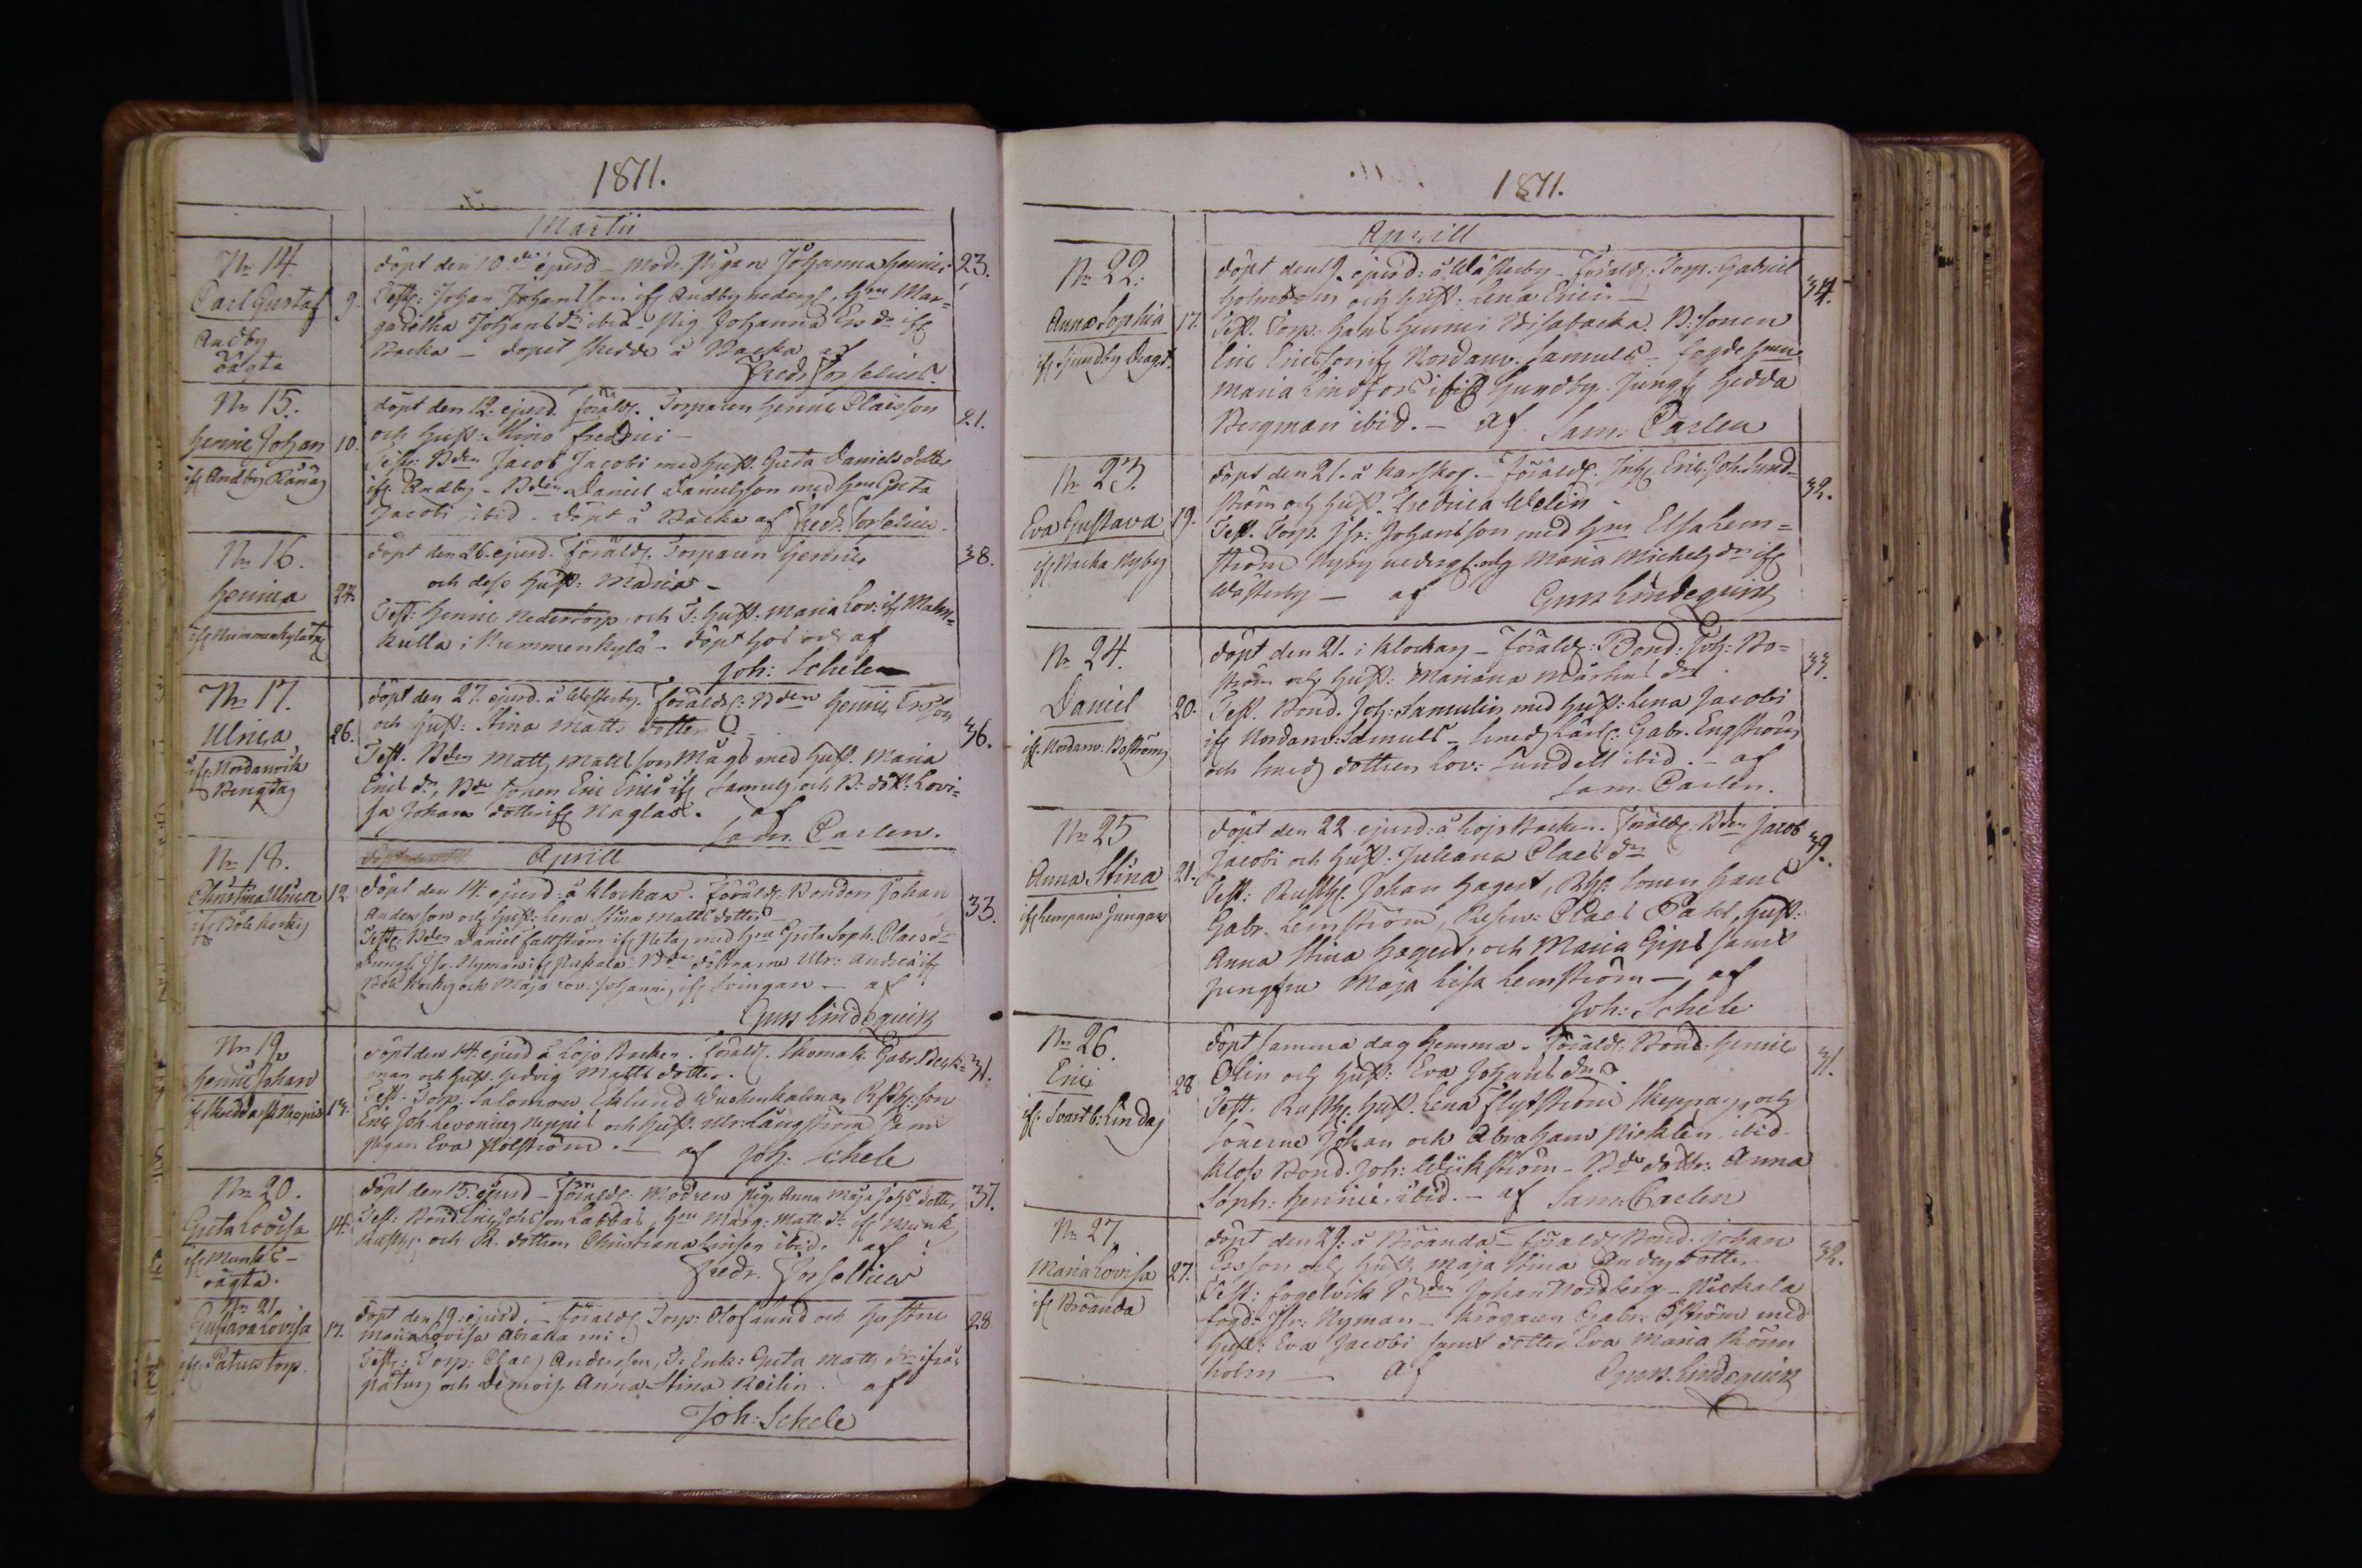 1811.
Martii
No 14
Carl Gustaf
Andby
Rågta
9.
döpt den 10de ejusd – Modr. Pigan Johanna Henrics
Test: Johan Johansson ifr Andby nederg, hru Mar=
garetha Johansdr ibid – Pig. Johanna Ersdr ifr
Backa – dopet skedde å Backa af
Fredr Forselius.
23.
No 15.
Henric Johan
ifr Andby Rånäs
10.
döpt den 12. ejusd. Föräldr. Torparen Henric Claësson
och hust: Stina Fredrici –
Test: Bden Jacob Jacobi med hust. Greta Danielsdotter
ifr Andby – Bden Daniel Danielsson med hru Greta
Jacobi, ibid. döpt å Backa af Fredr. Forselius.
21.
No 16.
Henrica
ifr Nummenkylä
24.
döpt den 26. ejusd. Föräldr. Torparen Henric
och dess hust: Maria –
Test: Henric Nedertorp och T: hust. Maria Lov: ifr Malm=
kulla i Nummenkylä – döpt hos och af
Joh: Schele
38.
No 17.
Ulrica
ifr Nordanvik
Bengts
26.
döpt den 27. ejusd. å Westerby. Föräldr: Bden Henric Ersson
och hust: Stina Matts dotter
Test. Bden Matts Mattsson Mågs med hust. Maria
Ericsdr, Bde Sonen Eric Erics ifr Samuls och B: dott. Lovi=
sa Johans dotter ifr Naglas. af
Sam. Carlen.
36.
No 18.
Aprill
Christina Ulrica
ifr Böle
12.
döpt den 14. ejusd: å Klockars. Föräldr. Bonden Johan
Andersson och hust: Lena Stina Matts dotter –
Test: Bden Daniel Fallström ifr med hru Greta Soph. Claesdr
Drengn Isr. Nyman ifr Pickala Bde döttrarne Ulr: Andres ifr
Böle och Maja Lov. Johannis ifr Svingars – af
Gust Lindequist
33.
No 19.
Henric Johan
13.
döpt den 14. ejusd å Lojo Backen. Föräldr. Skomak. Gabr. Berk=
man och hust. Hedvig Matts dotter.
Test. Torp. Salomon Eklund Rusth: son
Eric Joh. Levonius Neppis och hust. Ulr: Långström samt
pigan Eva Holström. – af Joh. Schele
31.
No 20.
Greta Lovisa
ifr Munks –
rågta.
14.
döpt den 15. ejusd – Modren pig. Anna Maja Johs dotter
Test: Bond Eric Johsson Labbas, hru Marg: Mattsdr ifr Munks
Rusth. och R. dottren Christiana Linsen ibid. af
Fredr. Forselius
37.
No 21
Gustava Lovisa
ifr Paturs torp.
17.
döpt den 19. ejusd. – Föräldr Torp: Olof Lund och hustru
Maria Lovisa Abrahami.
Test: Torp: Claes Andersson, T: Enk: Greta Matts dr ifrån
Paturs och Demois. Anna Stina Reilin. af
Joh: Schele
28
1811.
Aprill
No 22.
Anna Sophia
ifr Sjundby Dragst.
17.
döpt den 19. ejusd: å Wästerby – Föräldr. Torp. Gabriel
Holmström och hust: Lena Erici –
Test. Torp. Hans Henrici Wisabacka. B: Sonen
Eric Ericsson ifr Nordanv. Samuls – Fogde hrun
Maria Lindfors ifr Sjundby. Jungfr Hedda
Bergman ibid. – af Sam. Carlen
34.
No 23.
Eva Gustava
ifr Backa Nyby
19.
döpt den 21. å Karskog. – Föräldr. Eric Joh. Sund=
ström och hust. Fredrica Welin
Test. Torp. Isr. Johansson med hru Elsa Lem=
ström Nyby nedergl. och Maria Michelsdr ifr
Wästerby – af Gust Lindequist
32.
No 24.
Daniel
ifr Nordanv: Boströms
20.
döpt den 21. i Klockars – Föräldr: Bond. Joh: Bo=
ström och hust: Mariana Mårtens dr
Test. Bond. Joh: Samulin med hust: Lena Jacobi
ifr Nordanv: Samuls – Gabr. Engström
och smeds dottren Lov: Sundell ibid. – af
Sam. Carlen.
33.
No 25
Anna Stina
ifr Kempans Jungars
21.
döpt den 22 ejusd: å Lojo Backen. Föräldr. Bden Jacob
Jacobi och hust. Juliana Claes dr
Test: Rusth. Johan Hagert, Rh: sonen Hans
Gabr. Lemström, Reserv: Claes Pahl, hust:
Anna Stina Hagert, och Maria Gips samt
jungfru Maja Lisa Lemström – af
Joh: Schele
39.
No 26.
Eric
ifr Svartb: Linda
28
döpt samma dag hemma. Föräldr. Bond. Henric
Olin och hust: Eva Johans dr
Test. Rusth. hust. Lena Flyktström Skeppars, och
sönerne Johan och Abraham Nicklen ibid.
Kloss Bond. Joh: Wikström – Bde dottr: Anna
Soph: Henrici ibid. – af Sam: Carlen
31.
No 27
Maria Lovisa
ifr Bröanda
27.
döpt den 29. å Bröanda – Föräldr Bond. Johan
Ersson och hust. Maja Stina Anders dotter
Test: Fogelvik Bden Johan Nordberg – Pickala
Fogd: Isr: Nyman – Krögaren Gabr. Öström med
hust: Eva Jacobi samt dotter Eva Maria Ström
holm – af Gust. Lindequist
32.